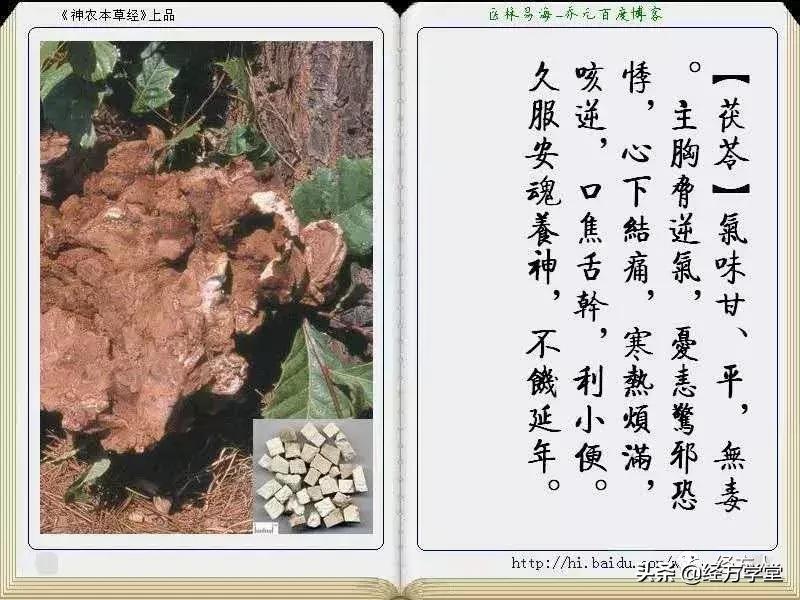 《神农本草经》上品
医林易海_乔元百度博客
【茯苓】氣味甘、平，無毒
。主胸脅逆氣，憂恚驚邪恐
悸，心下結痛，寒熱煩滿，
咳逆，口焦舌幹，利小便。
久服安魂養神，不饑延年。
http://hi.baidu.co
头条 @经方学堂